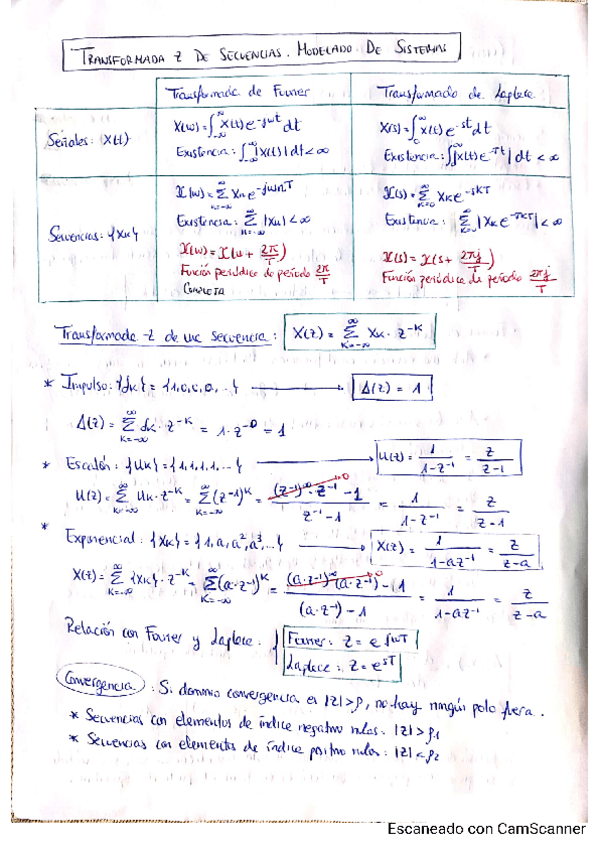 TRANSFORMADA Z DE SECUENCIAS. MODELADO DE SISTEMAS
Transformada de Fourier
Transformada de Laplace
Señales: X(t)
X(ω) = ∫_{-∞}^{∞} X(t) e^{-jωt} dt
Existencia: ∫_{-∞}^{∞} |X(t)| dt < ∞
X(s) = ∫_0^∞ X(t) e^{-st} dt
Existencia: ∫|X(t) e^{-σt}| dt < ∞
Secuencias: {Xk}
X(ω) = Σ_{k=-∞}^{∞} Xn e^{-jωnT}
Existencia: Σ_{k=-∞}^{∞} |Xk| < ∞
X(ω) = X(ω + 2π/T)
Función periódica de periodo 2π/T
COMPLETA
X(s) = Σ_{k=0}^{∞} Xk e^{-skT}
Existencia: Σ |Xk e^{-σkT}| < ∞
X(s) = X(s + 2πj/T)
Función periódica de periodo 2πj/T
Transformada -z de una secuencia: X(z) = Σ_{k=-∞}^{∞} Xk · z^{-k}
* Impulso: {dk} = {1,0,0,0,...} → Δ(z) = 1
Δ(z) = Σ_{k=-∞}^{∞} dk · z^{-k} = 1·z^{-0} = 1
* Escalón: {Uk} = {1,1,1,1,...} → U(z) = 1/(1-z^{-1}) = z/(z-1)
U(z) = Σ_{k=-∞}^{∞} Uk · z^{-k} = Σ_{k=-∞}^{∞} (z^{-1})^k = ((z^{-1})^∞ · z^{-1} - 1)/(z^{-1} - 1) = 1/(1-z^{-1}) = z/(z-1)
* Exponencial: {Xk} = {1,a,a²,a³,...} → X(z) = 1/(1-az^{-1}) = z/(z-a)
X(z) = Σ_{k=-∞}^{∞} {Xk} · z^{-k} = Σ_{k=-∞}^{∞} (a·z^{-1})^k = ((a·z^{-1})^∞ (a·z^{-1}) - 1)/((a·z^{-1}) - 1) = 1/(1-az^{-1}) = z/(z-a)
Relación con Fourier y Laplace: { Fourier: z = e^{jωT}
Laplace: z = e^{sT}
Convergencia: Si dominio convergencia es |z|>ρ, no hay ningún polo fuera.
* Secuencias con elementos de índice negativo nulos: |z| > ρ1
* Secuencias con elementos de índice positivo nulos: |z| < ρ2
Escaneado con CamScanner